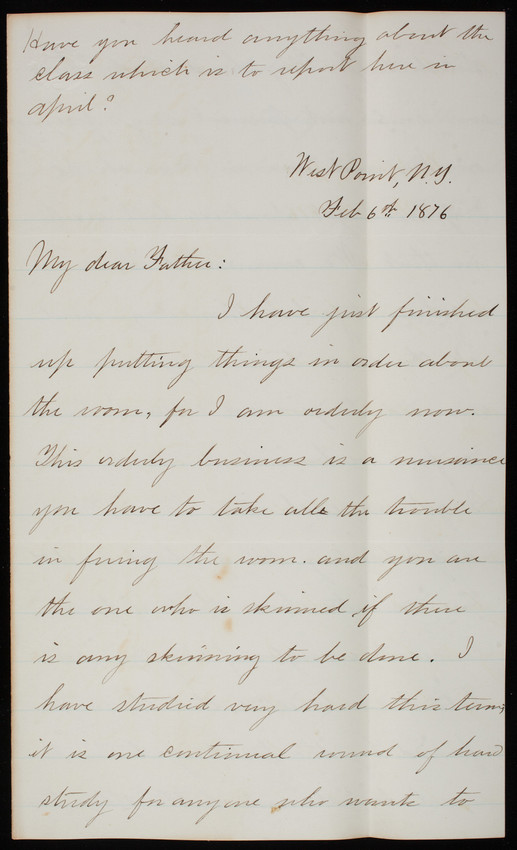 Have you heard anything about the
class which is to report here in
april?
West Point, N.Y.
Feb 6th 1876
My dear Father:
I have just finished
up putting things in order about
the room, for I am orderly now.
This orderly business is a nuisance
you have to take all the trouble
in fixing the room. and you are
the one who is skinned if there
is any skinning to be done. I
have studied very hard this term;
it is one continual round of hard
study for anyone who wants to